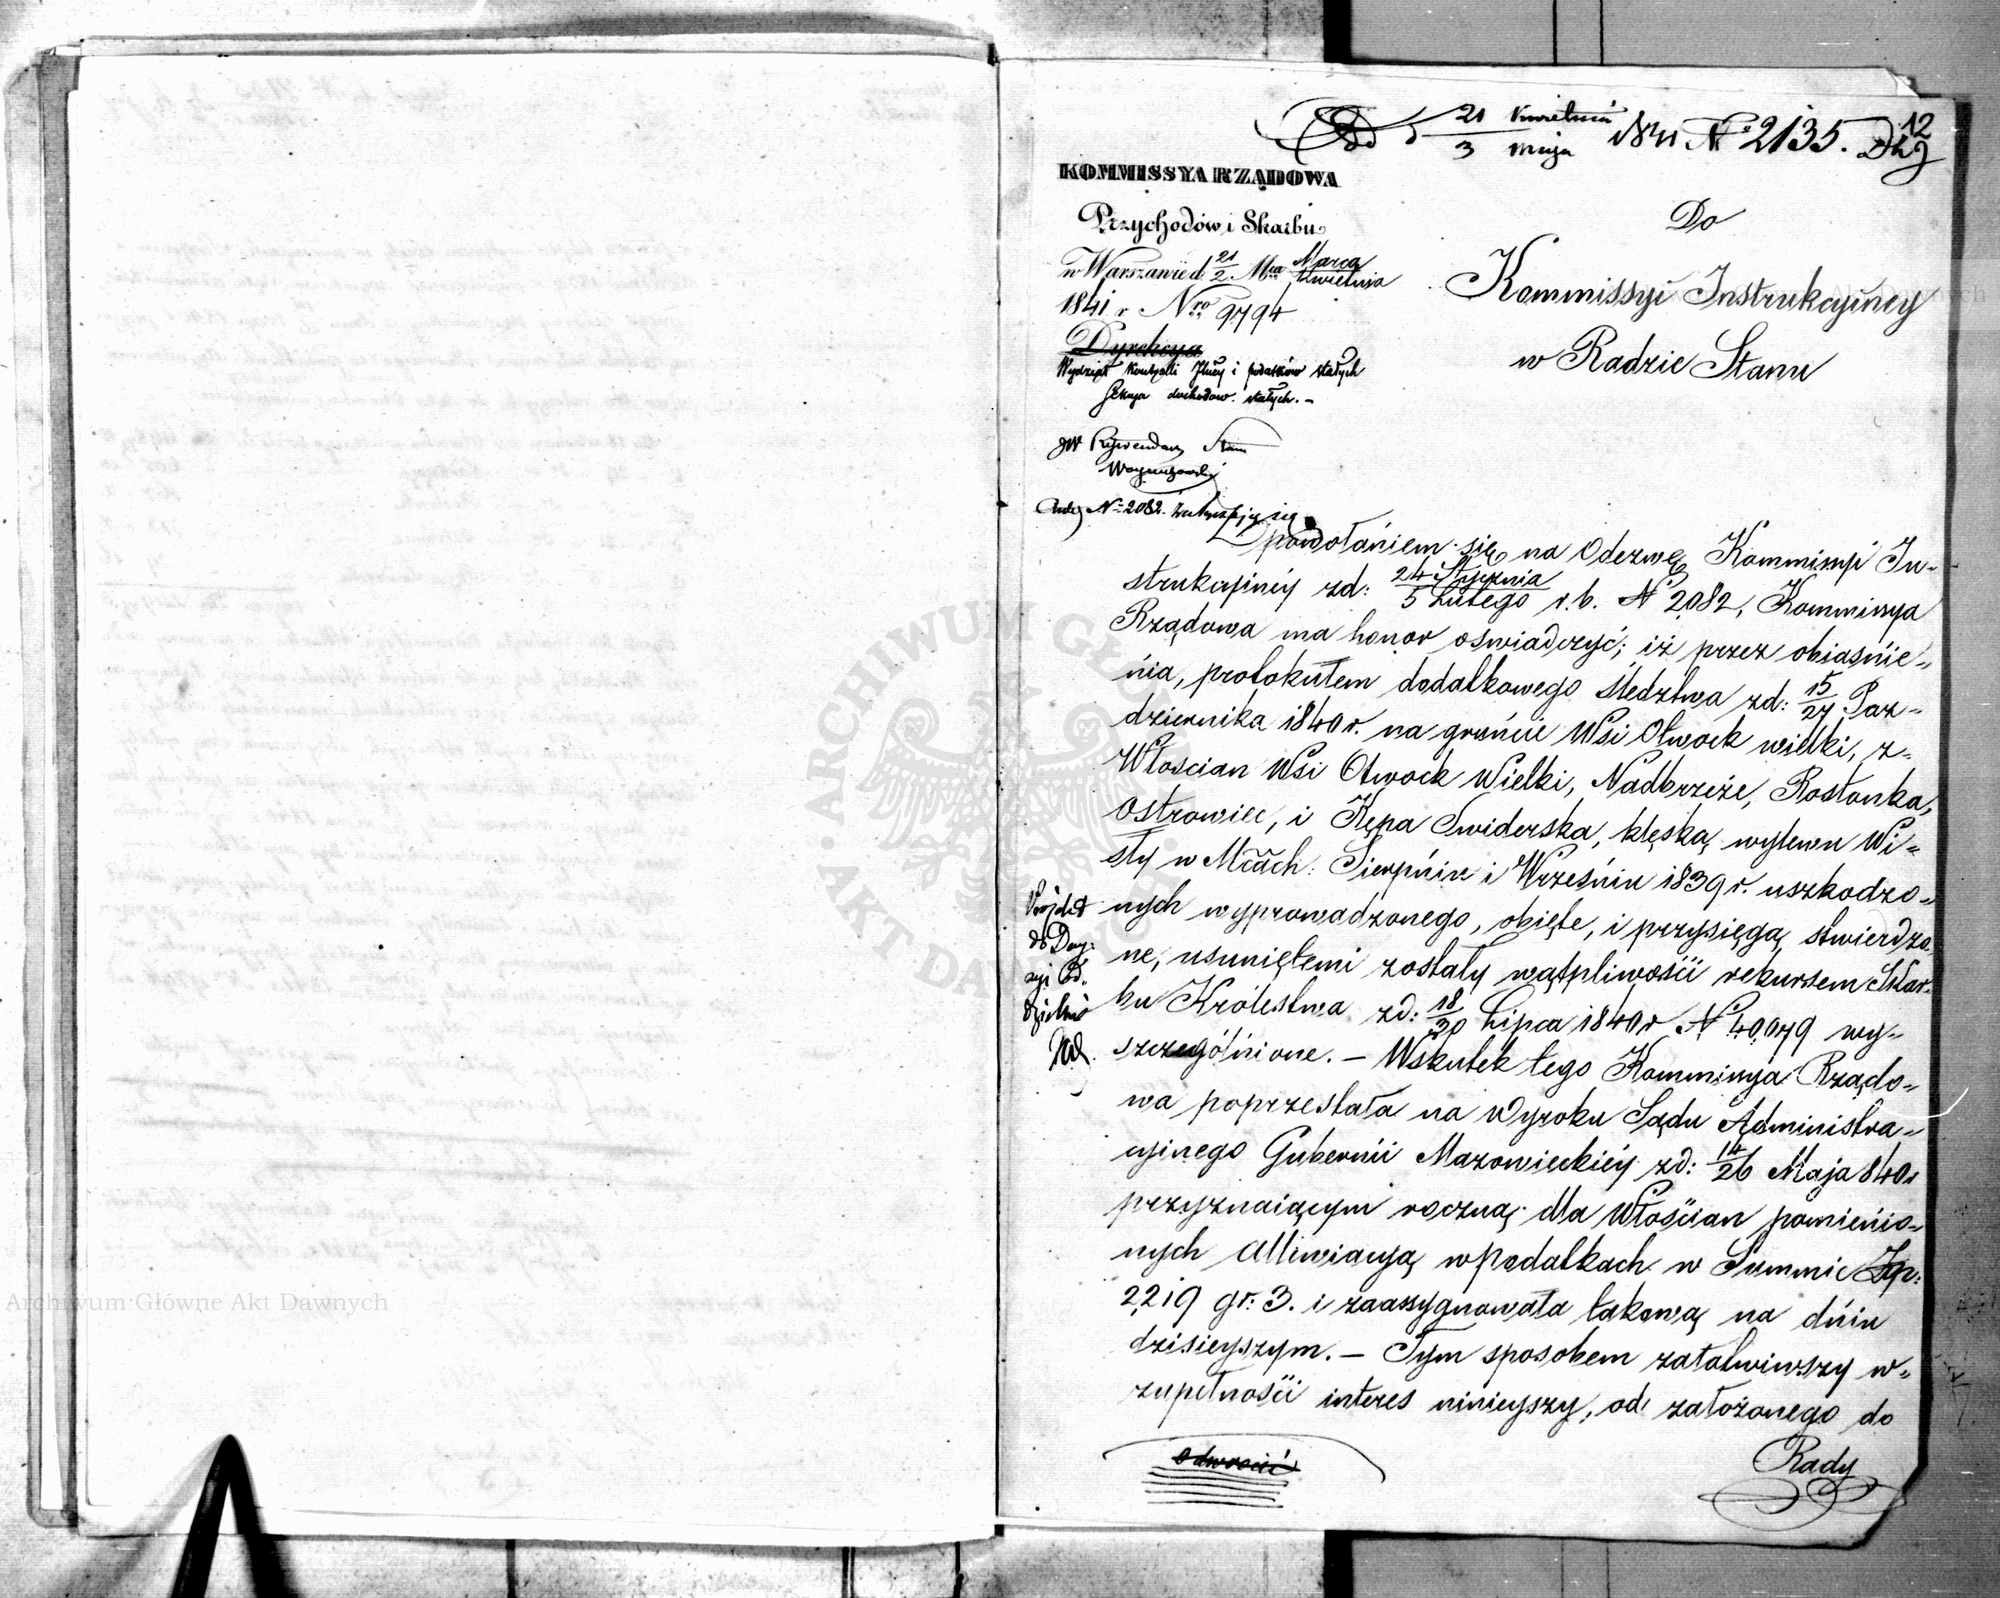 21 Kwietnia
3 Maja 1841 Nº 2135.
12
KOMMISSYA RZĄDOWA
Przychodów i Skarbu
w Warszawie d. 21/2. Mca Marca/Kwietnia
1841 r Nro 9794
Dyrekcya
Wydział Kontrolli Służby i podatków stałych
Sekcya dochodow. stałych. –
JW Referendarz Stanu
Do
Kommissyi Instrukcyiney
w Radzie Stanu
Nº 2082.
Z powołaniem się na Odezwę Kommissyi In-
strukcyiney z d: 24 Stycznia/5 Lutego r. b. Nº 2082, Kommissya
Rządowa ma honor oswiadczyć, iż przez obiaśnie-
nia, protokułem dodatkowego śledztwa z d: 15/27 Paz-
dziernika 1840 r. na gruńcie Wsi Otwock wielki, z-
Włoscian Wsi Otwock Wielki, Nadbrzeże, Rostonka,
Ostrowiec, i Kępa Swiderska, klęską wylewu Wi-
sły w Mcach: Sierpńiu i Wrześniu 1839 r. uszkodzo-
nych wyprowadzonego, obięte, i przysięgą stwierdzo
ne, usuniętemi zostały wątpliwośći rekursem Skar-
bu Królestwa z d: 18/30 Lipca 1840 r Nº 40,079 wy-
szczegolnione. – Wskutek tego Kommissya Rządo-
wa poprzestała na Wyroku Sądu Administra-
cyinego Gubernii Mazowieckiey z d: 14/26 Maja 840 r
przyznaiącym roczną dla Włośćian pomienio-
nych Alliwiacyą w podatkach w Summie Zp:
2,219 gr: 3. i zaassygnowała takową na dńiu
dzisieyszym. – Tym sposobem załatwiwszy w-
zupełnośći interes ninieyszy, od założonego do
Rady
Projekt
do Decy:
zyi Od-
dzielnie
odwrocić
Archiwum Główne Akt Dawnych
ARCHIWUM GŁÓWNE AKT DAWNYCH